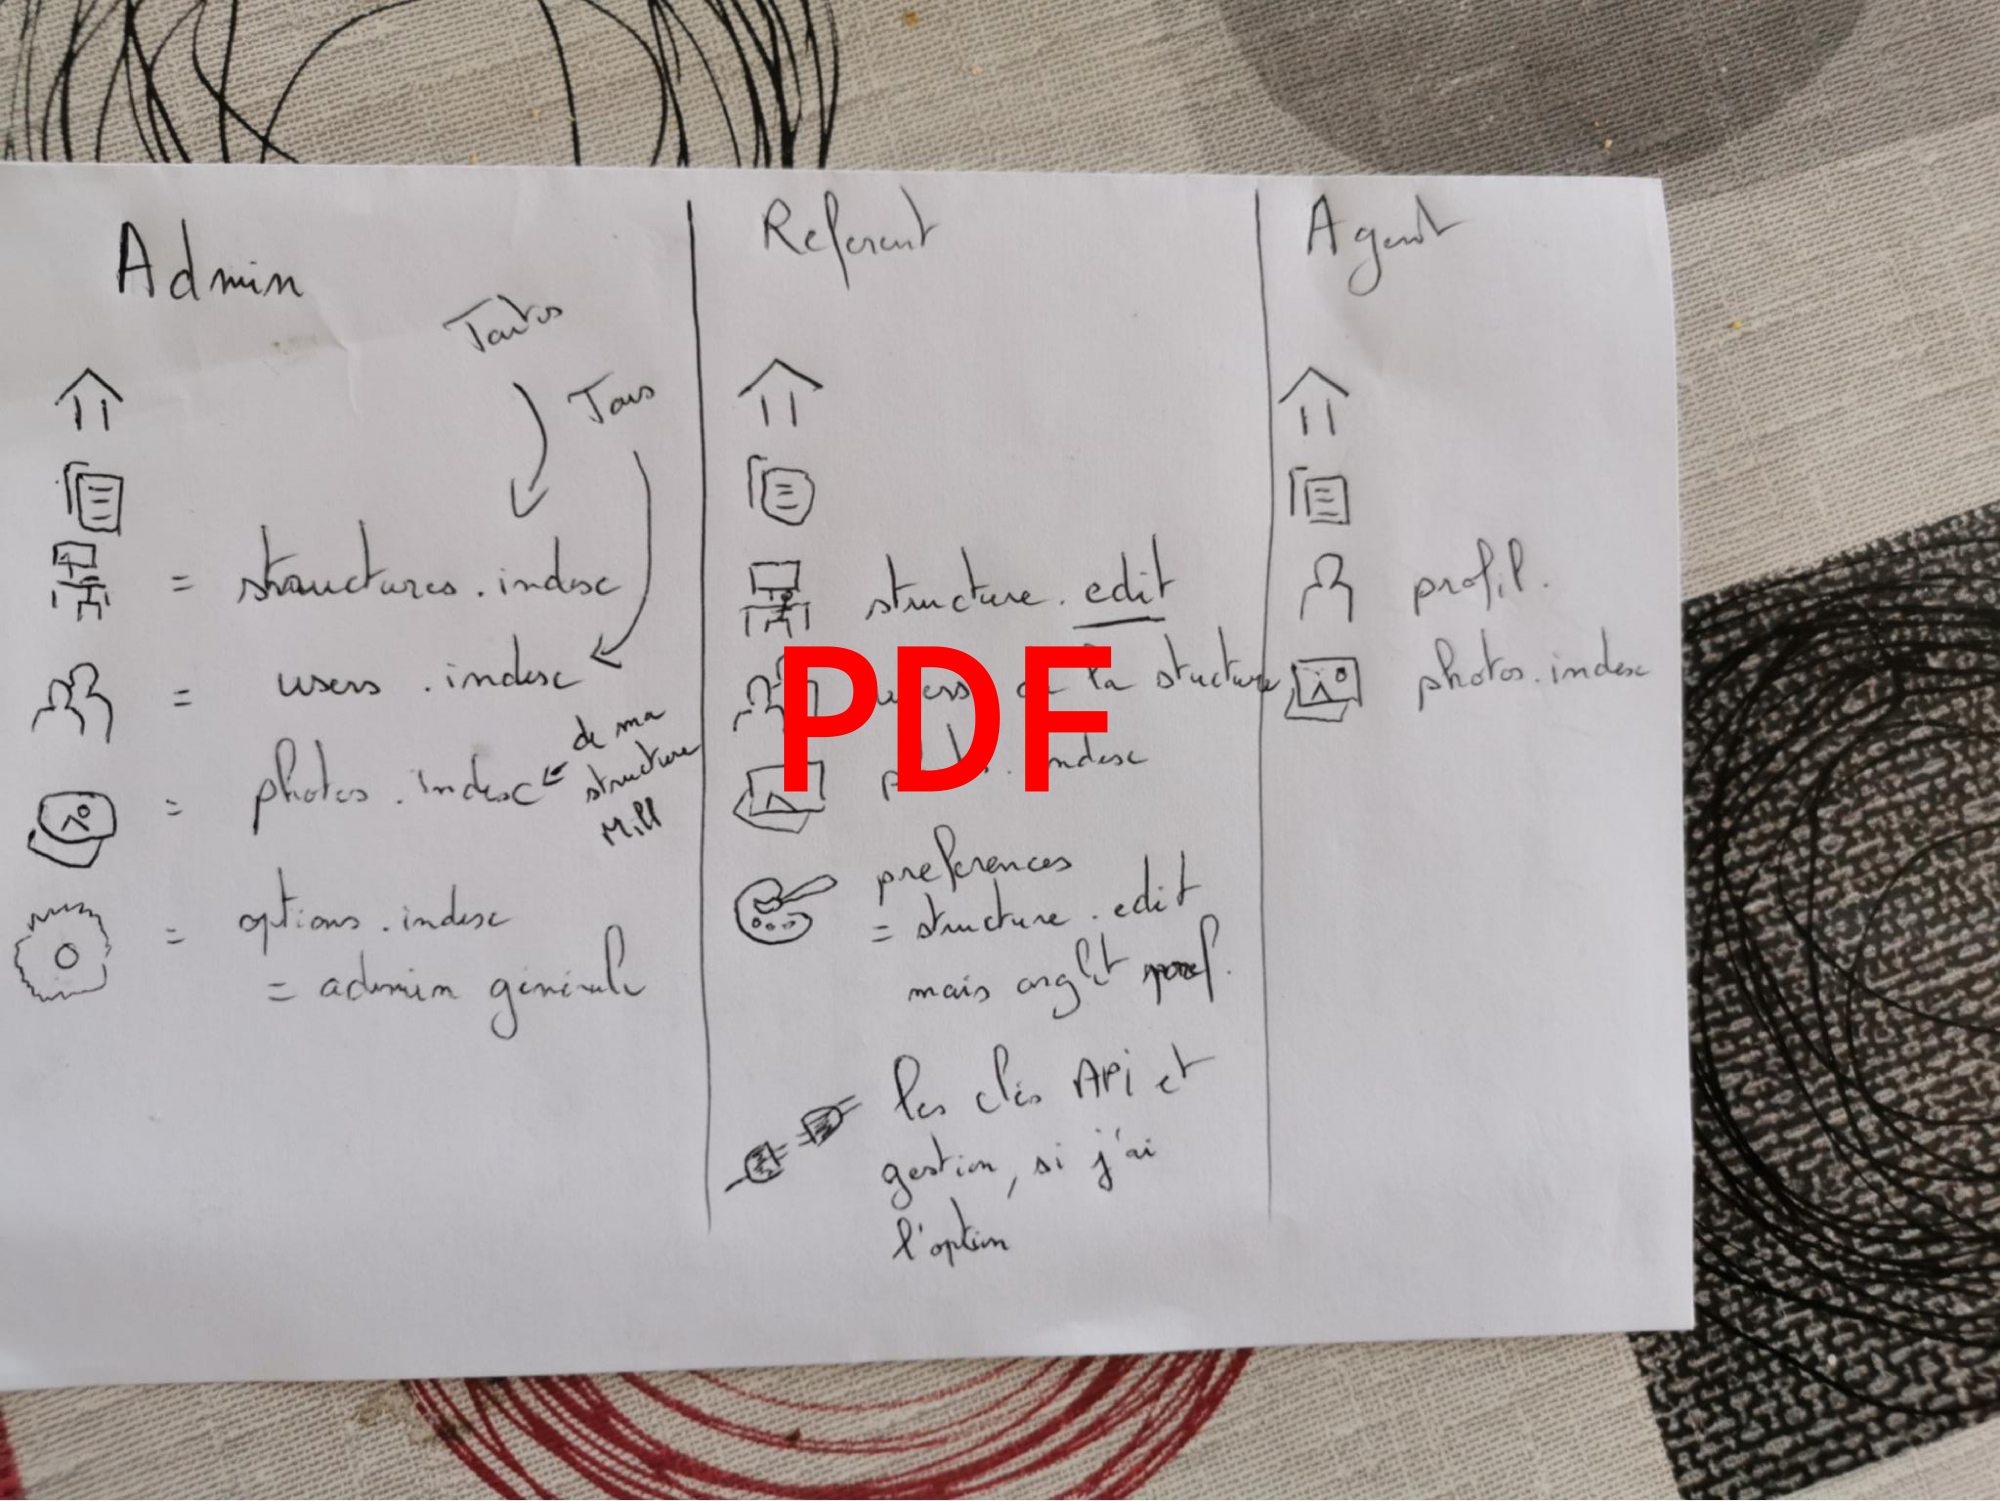 Admin
Toutes
Tous
= structures.index
= users.index
= photos.index
de ma
structure
Mill
= options.index
= admin générale
Referent
structure.edit
users de la structure
index
preferences
= structure.edit
mais onglet pref.
les clés API et
gestion, si j'ai
l'option
Agent
profil.
photos.index
PDF